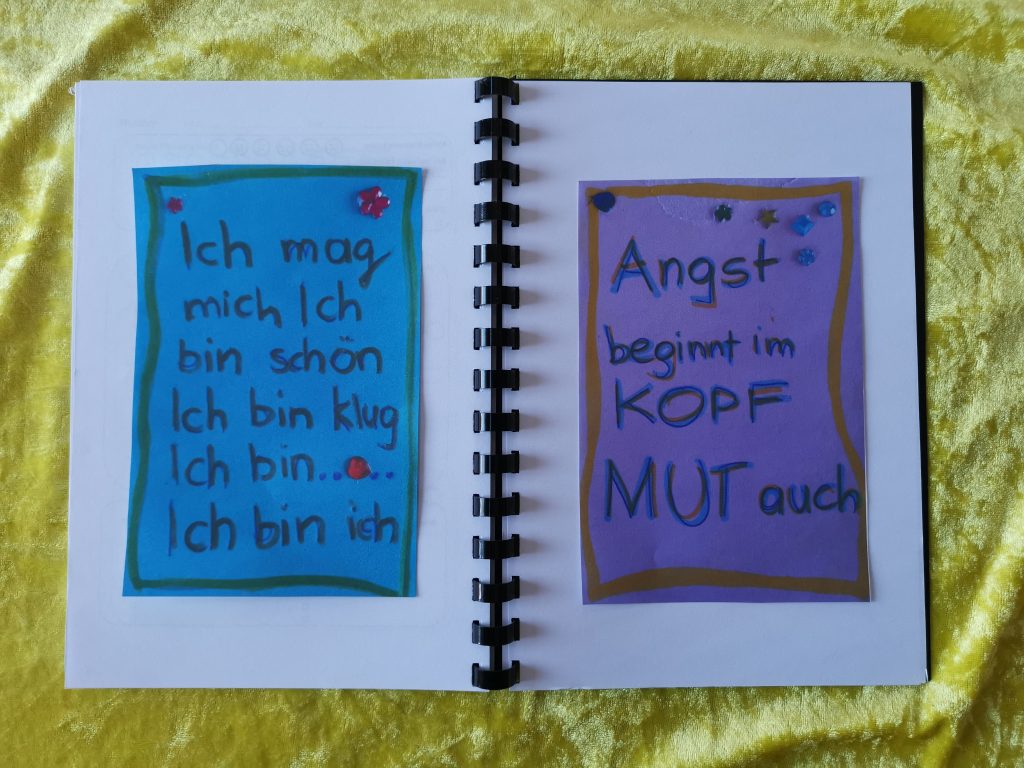 Ich mag
mich Ich
bin schön
Ich bin klug
Ich bin.....
Ich bin ich
Angst
beginnt im
KOPF
MUT auch